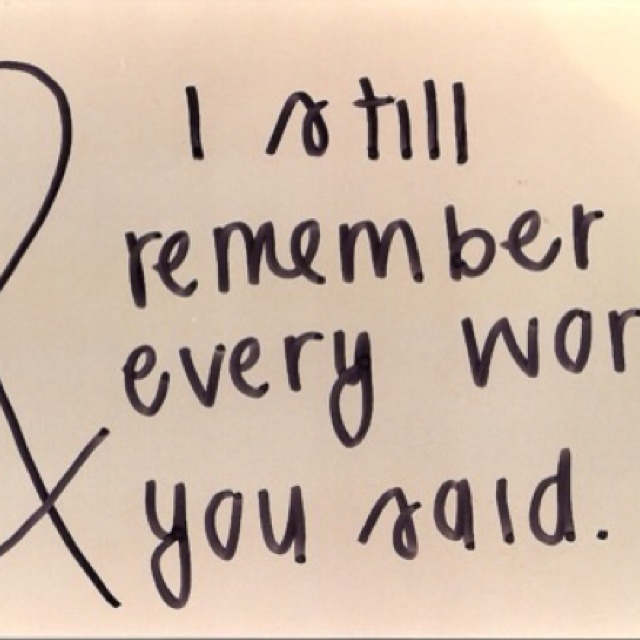 & I still
remember
every wor
you said.